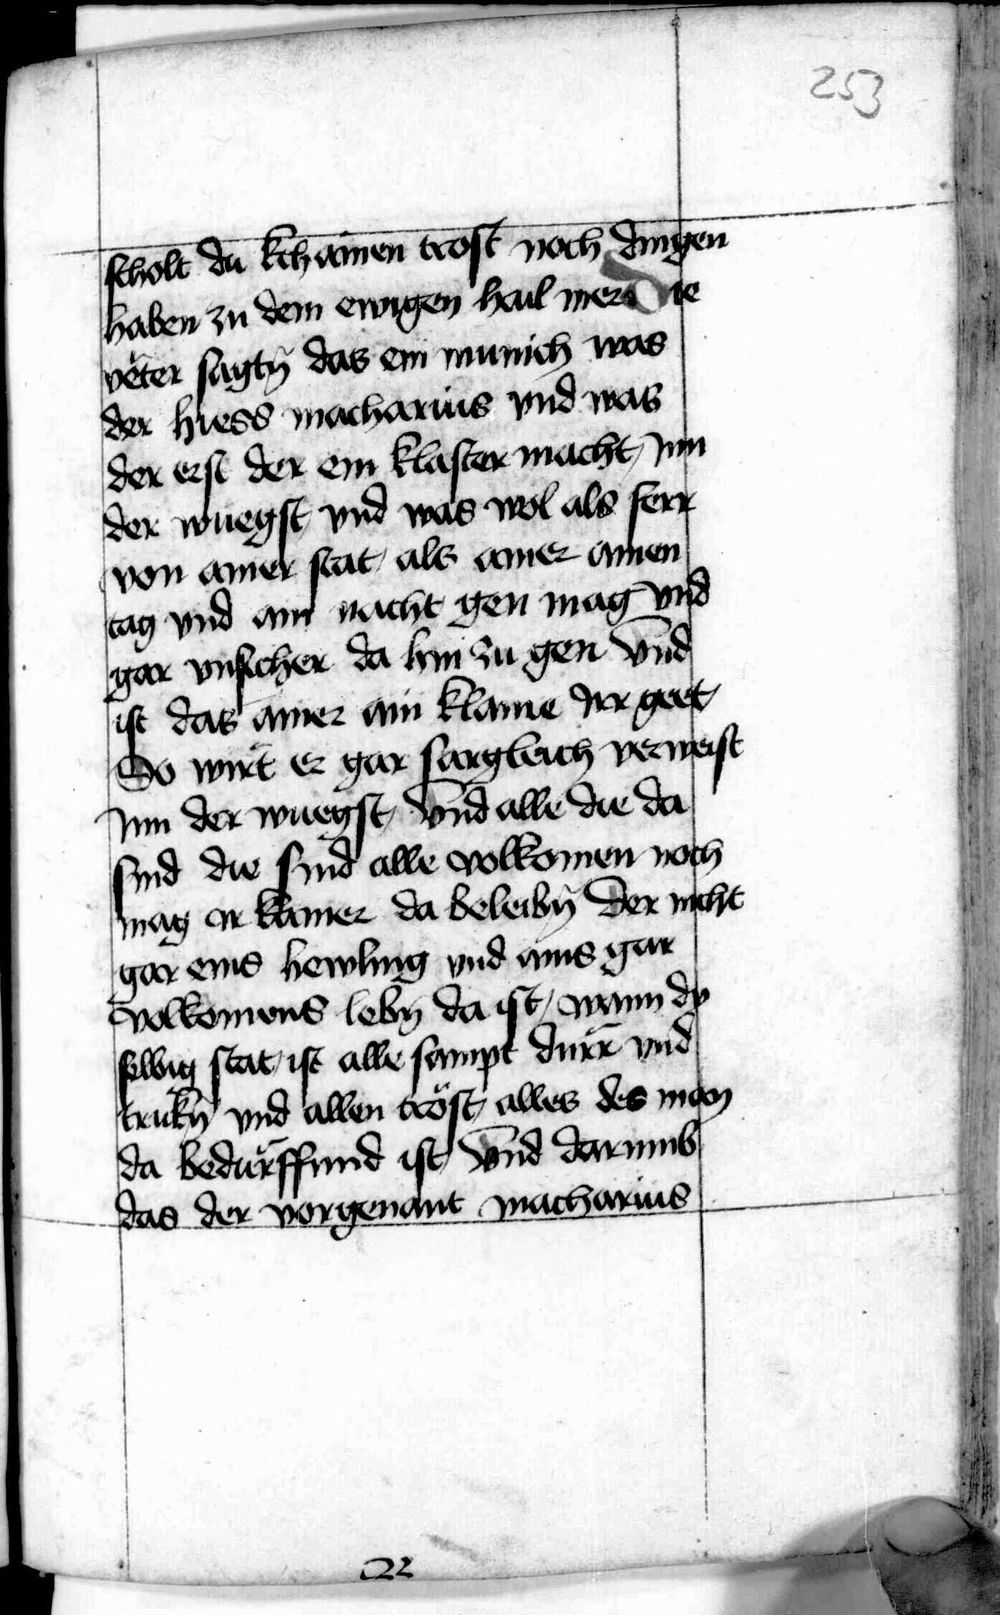 253
scholt du kchainen trost noch dingen
haben zu dem ewigen hail mer Die
veter sagtn̄ das ein munich was
der hiess macharius vnd was
der erst der ein klaster macht Inn
der wuegst vnd was wol als ferr
von ainer stat als ainer ainen
tag vnd ain nacht gen mag vnd
gar vnsicher da hin zu gen Vnd
ist das ainer ain klaine Irr geet
So wirt er gar sargleich verweist
Inn der wuegst Vnd alle die da
sind die sind alle volkomen noch
mag ir kainer da beleibn̄ Der nicht
gar eins hewling vnd ains gar
volkomens lebn̄ da ist wann dy
selbig stat ist alle sampt durr vnd
trukn̄ vnd allen tröst alles des man
da bedürffund ist Vnd darumb
das der vorgenant macharius
22